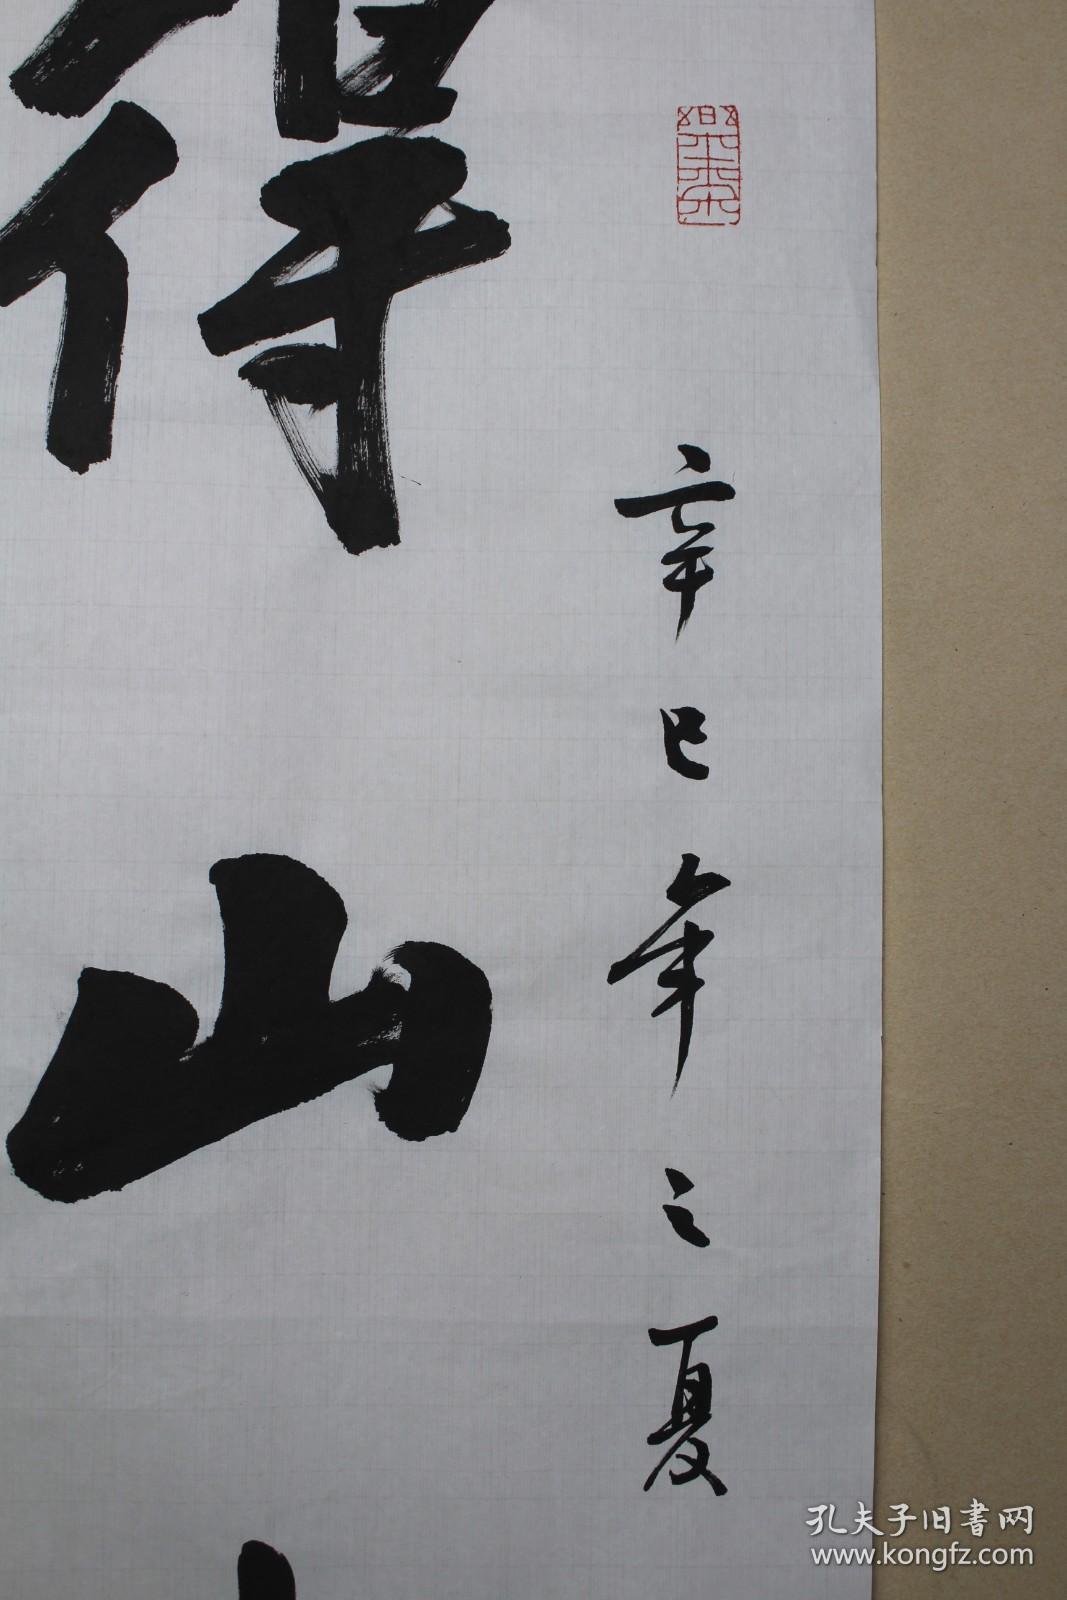 辛巳年之夏
得山
孔夫子旧書网
www.kongfz.com